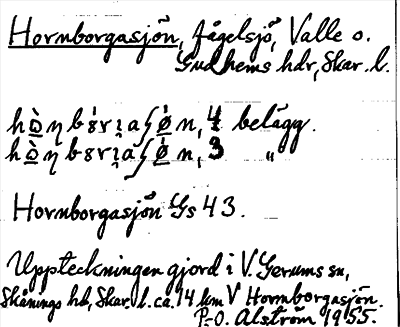 Hornborgasjön, fågelsjö, Valle o.
Gudhems hdr, Skar. l.
hòŋbørias̸ǿn, 4 belägg.
hòŋbørias̸ǿn, 3 "
Hornborgasjön Gs 43.
Uppteckningen gjord i V. Gerums sn,
Skånings hd, Skar. l. ca. 14 km V Hornborgasjön.
P-O. Alström 1955.